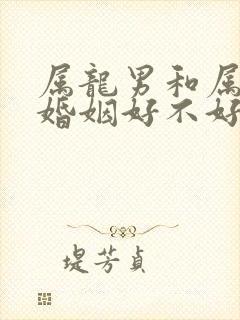 属龍男和属
婚姻好不好
堤芳貞